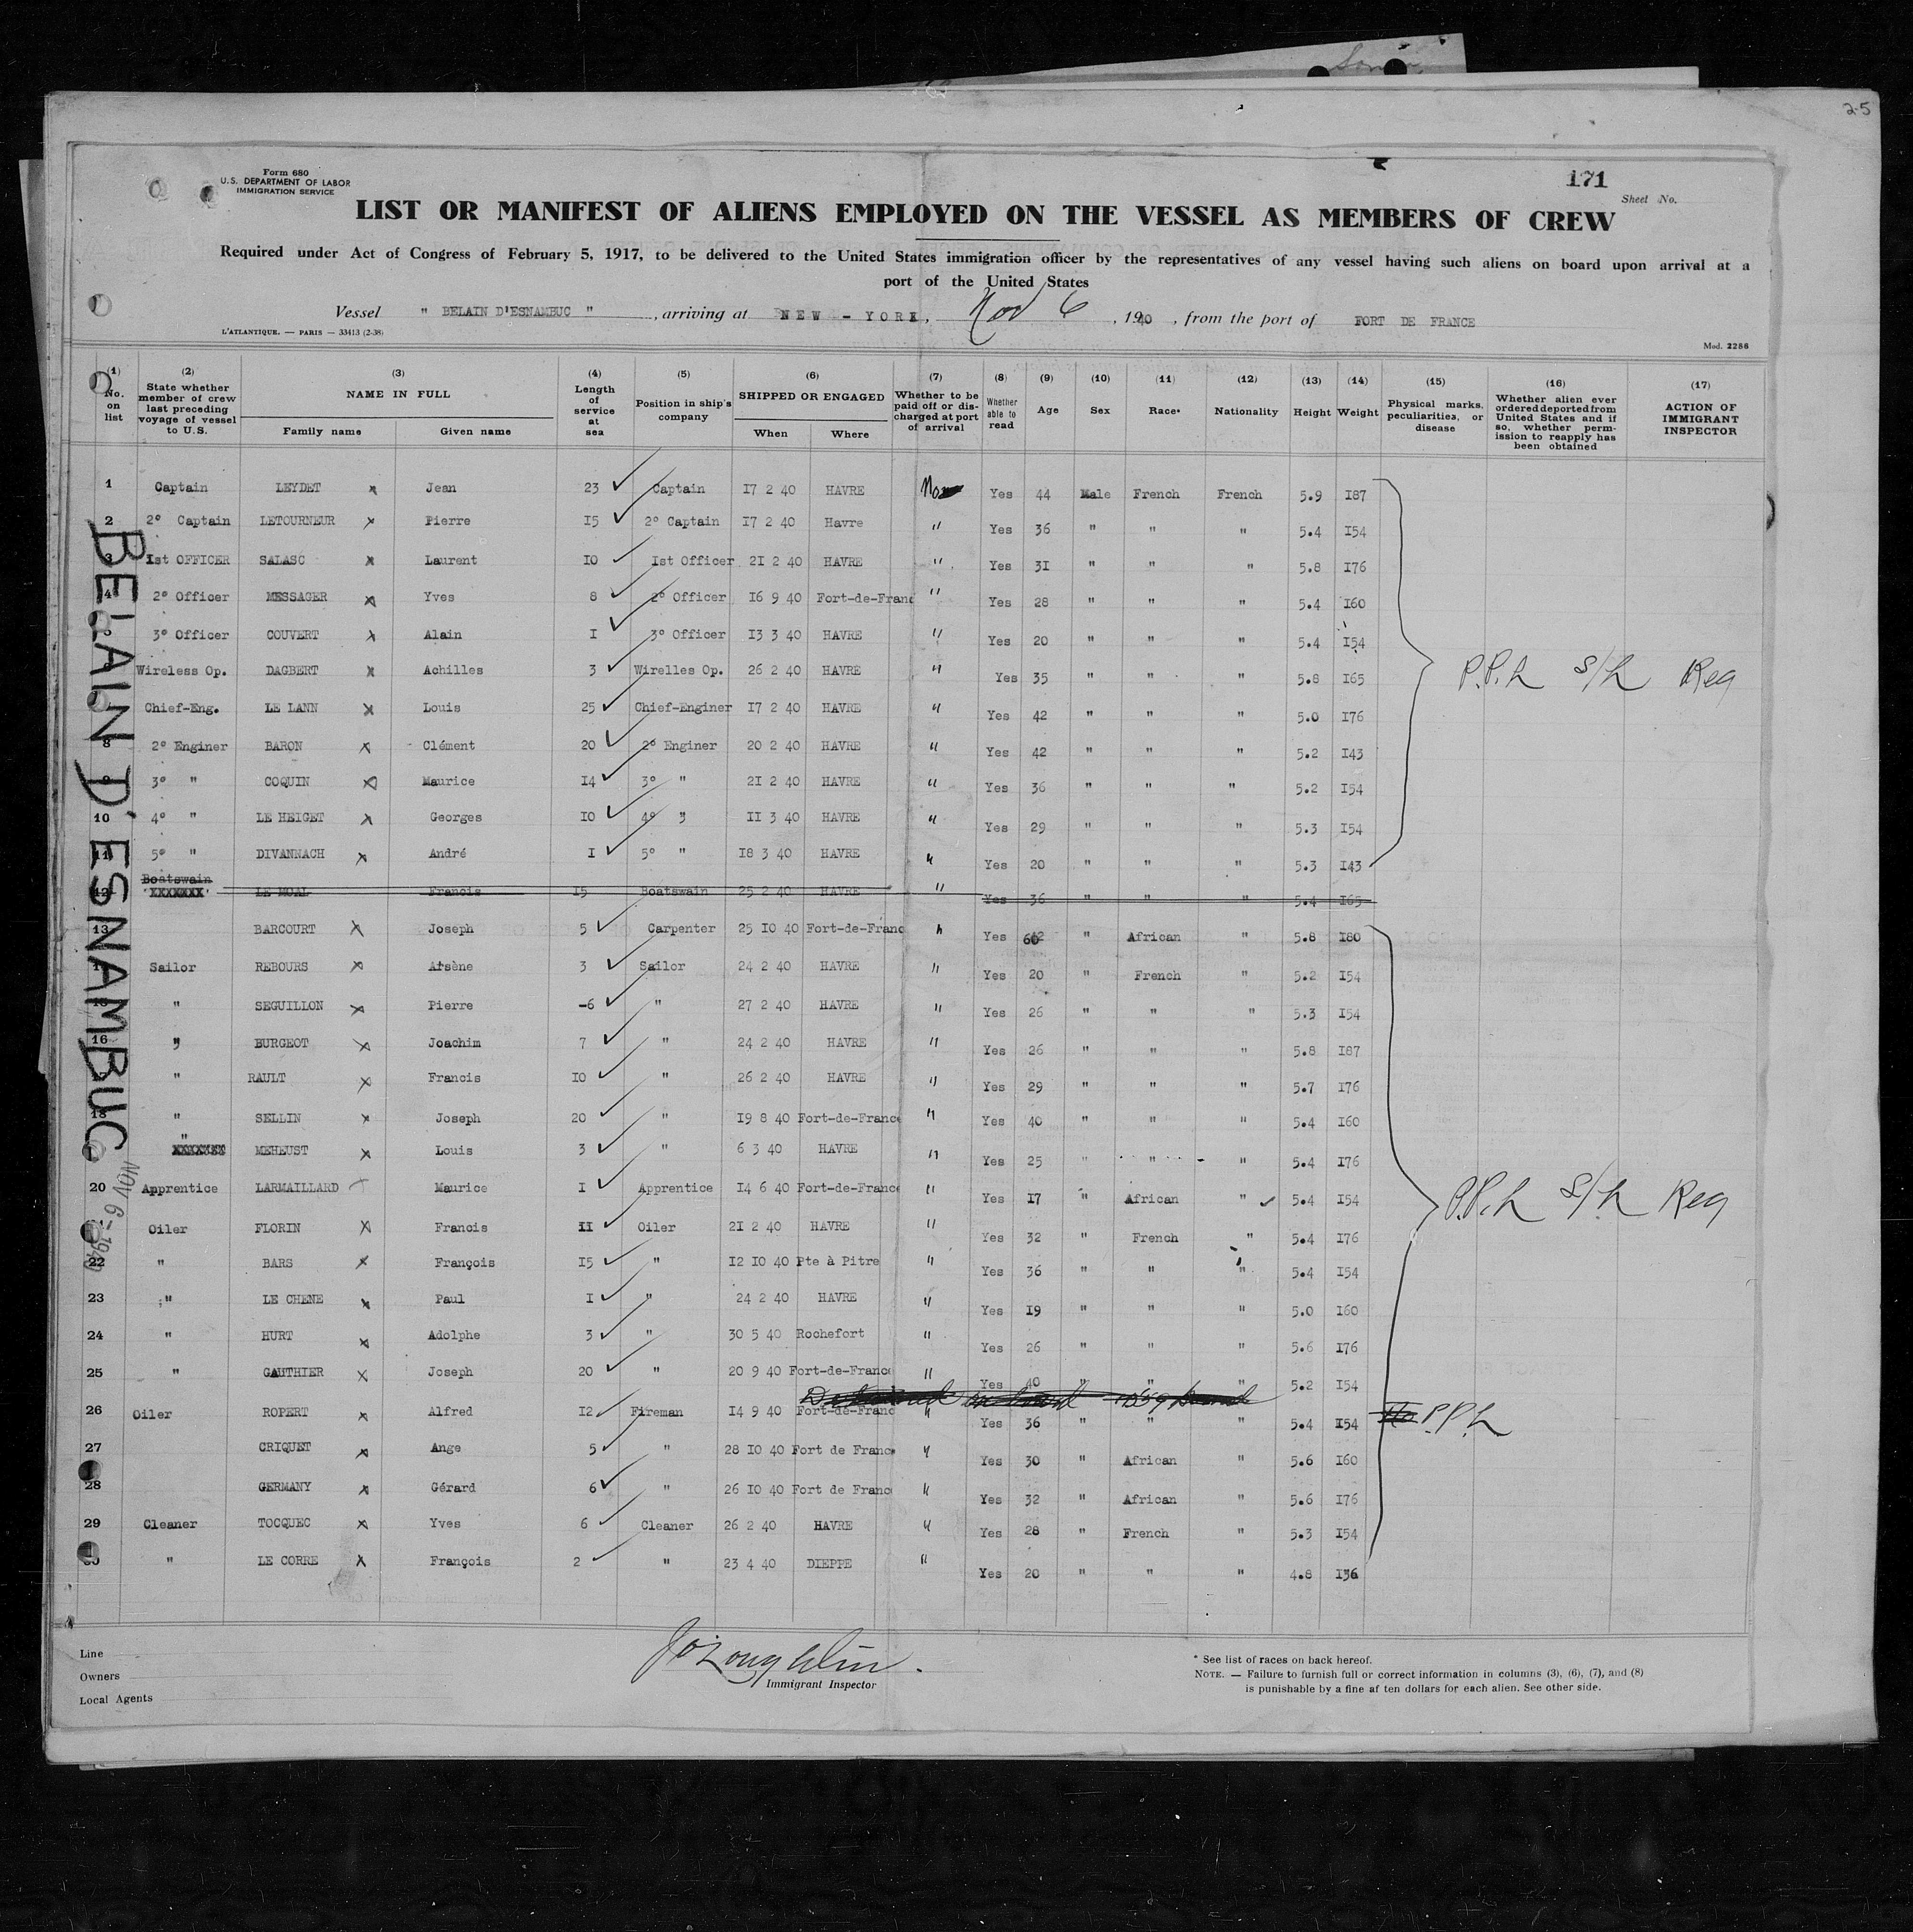 2-5
Form 680
U.S. DEPARTMENT OF LABOR
IMMIGRATION SERVICE
171
Sheet No.
LIST OR MANIFEST OF ALIENS EMPLOYED ON THE VESSEL AS MEMBERS OF CREW
Required under Act of Congress of February 5, 1917, to be delivered to the United States immigration officer by the representatives of any vessel having such aliens on board upon arrival at a
port of the United States
Vessel " BELAIN D'ESNAMBUC " , arriving at NEW - YORK, Nov 6 , 1940 , from the port of FORT DE FRANCE
L'ATLANTIQUE. — PARIS — 33413 (2-38)
Mod. 2286
(1) No. on list (2) State whether member of crew last preceding voyage of vessel to U.S. (3) NAME IN FULL Family name Given name (4) Length of service at sea (5) Position in ship's company (6) SHIPPED OR ENGAGED When Where (7) Whether to be paid off or discharged at port of arrival (8) Whether able to read (9) Age (10) Sex (11) Race* (12) Nationality (13) Height (14) Weight (15) Physical marks, peculiarities, or disease (16) Whether alien ever ordered deported from United States and if so, whether permission to reapply has been obtained (17) ACTION OF IMMIGRANT INSPECTOR
1 Captain LEYDET x Jean 23 Captain 17 2 40 HAVRE No Yes 44 Male French French 5.9 187
2 2° Captain LETOURNEUR x Pierre 15 2° Captain 17 2 40 Havre " Yes 36 " " " 5.4 154
3 1st OFFICER SALASC x Laurent 10 1st Officer 21 2 40 HAVRE " Yes 31 " " " 5.8 176
4 2° Officer MESSAGER x Yves 8 2° Officer 16 9 40 Fort-de-Franc " Yes 28 " " " 5.4 160
3° Officer COUVERT x Alain 1 3° Officer 13 3 40 HAVRE " Yes 20 " " " 5.4 154
Wireless Op. DAGBERT x Achilles 3 Wirelles Op. 26 2 40 HAVRE " Yes 35 " " " 5.8 165
Chief-Eng. LE LANN x Louis 25 Chief-Enginer 17 2 40 HAVRE " Yes 42 " " " 5.0 176
8 2° Enginer BARON x Clément 20 2° Enginer 20 2 40 HAVRE " Yes 42 " " " 5.2 143
9 3° " COQUIN x Maurice 14 3° " 21 2 40 HAVRE " Yes 36 " " " 5.2 154
10 4° " LE HEIGET x Georges 10 4° " 11 3 40 HAVRE " Yes 29 " " " 5.3 154
11 5° " DIVANNACH x André 1 5° " 18 3 40 HAVRE " Yes 20 " " " 5.3 143
P.P.L S/L Reg
Boatswain
12 XXXXXXX LE MOAL Francis 15 Boatswain 25 2 40 HAVRE " Yes 36 " " " 5.4 165
13 BARCOURT x Joseph 5 Carpenter 25 10 40 Fort-de-Franc " Yes 60 " African " 5.8 180
Sailor REBOURS x Arsène 3 Sailor 24 2 40 HAVRE " Yes 20 " French " 5.2 154
15 " SEGUILLON x Pierre -6 " 27 2 40 HAVRE " Yes 26 " " " 5.3 154
16 " BURGEOT x Joachim 7 " 24 2 40 HAVRE " Yes 26 " " " 5.8 187
" RAULT x Francis 10 " 26 2 40 HAVRE " Yes 29 " " " 5.7 176
18 " SELLIN x Joseph 20 " 19 8 40 Fort-de-France " Yes 40 " " " 5.4 160
" MEHEUST x Louis 3 " 6 3 40 HAVRE " Yes 25 " " " 5.4 176
20 Apprentice LARMAILLARD x Maurice 1 Apprentice 14 6 40 Fort-de-France " Yes 17 " African " 5.4 154
Oiler FLORIN x Francis 11 Oiler 21 2 40 HAVRE " Yes 32 " French " 5.4 176
22 " BARS x François 15 " 12 10 40 Pte à Pitre " Yes 36 " " " 5.4 154
23 " LE CHENE x Paul 1 " 24 2 40 HAVRE " Yes 19 " " " 5.0 160
24 " HURT x Adolphe 3 " 30 5 40 Rochefort " Yes 26 " " " 5.6 176
25 " GAUTHIER x Joseph 20 " 20 9 40 Fort-de-France " Yes 40 " " " 5.2 154
26 Oiler ROPERT x Alfred 12 Fireman 14 9 40 Fort-de-Franc " Yes 36 " " " 5.4 154 P.P.L
27 CRIQUET x Ange 5 " 28 10 40 Fort de France " Yes 30 " African " 5.6 160
28 GERMANY x Gérard 6 " 26 10 40 Fort de Franc " Yes 32 " African " 5.6 176
29 Cleaner TOCQUEC x Yves 6 Cleaner 26 2 40 HAVRE " Yes 28 " French " 5.3 154
30 " LE CORRE x François 2 " 23 4 40 DIEPPE " Yes 20 " " " 4.8 136
P.P.L S/L Reg
BELAIN D'ESNAMBUC
NOV 6 - 1940
Line
Owners
Local Agents
J O'Loughlin.
Immigrant Inspector
* See list of races on back hereof.
NOTE. — Failure to furnish full or correct information in columns (3), (6), (7), and (8)
is punishable by a fine af ten dollars for each alien. See other side.